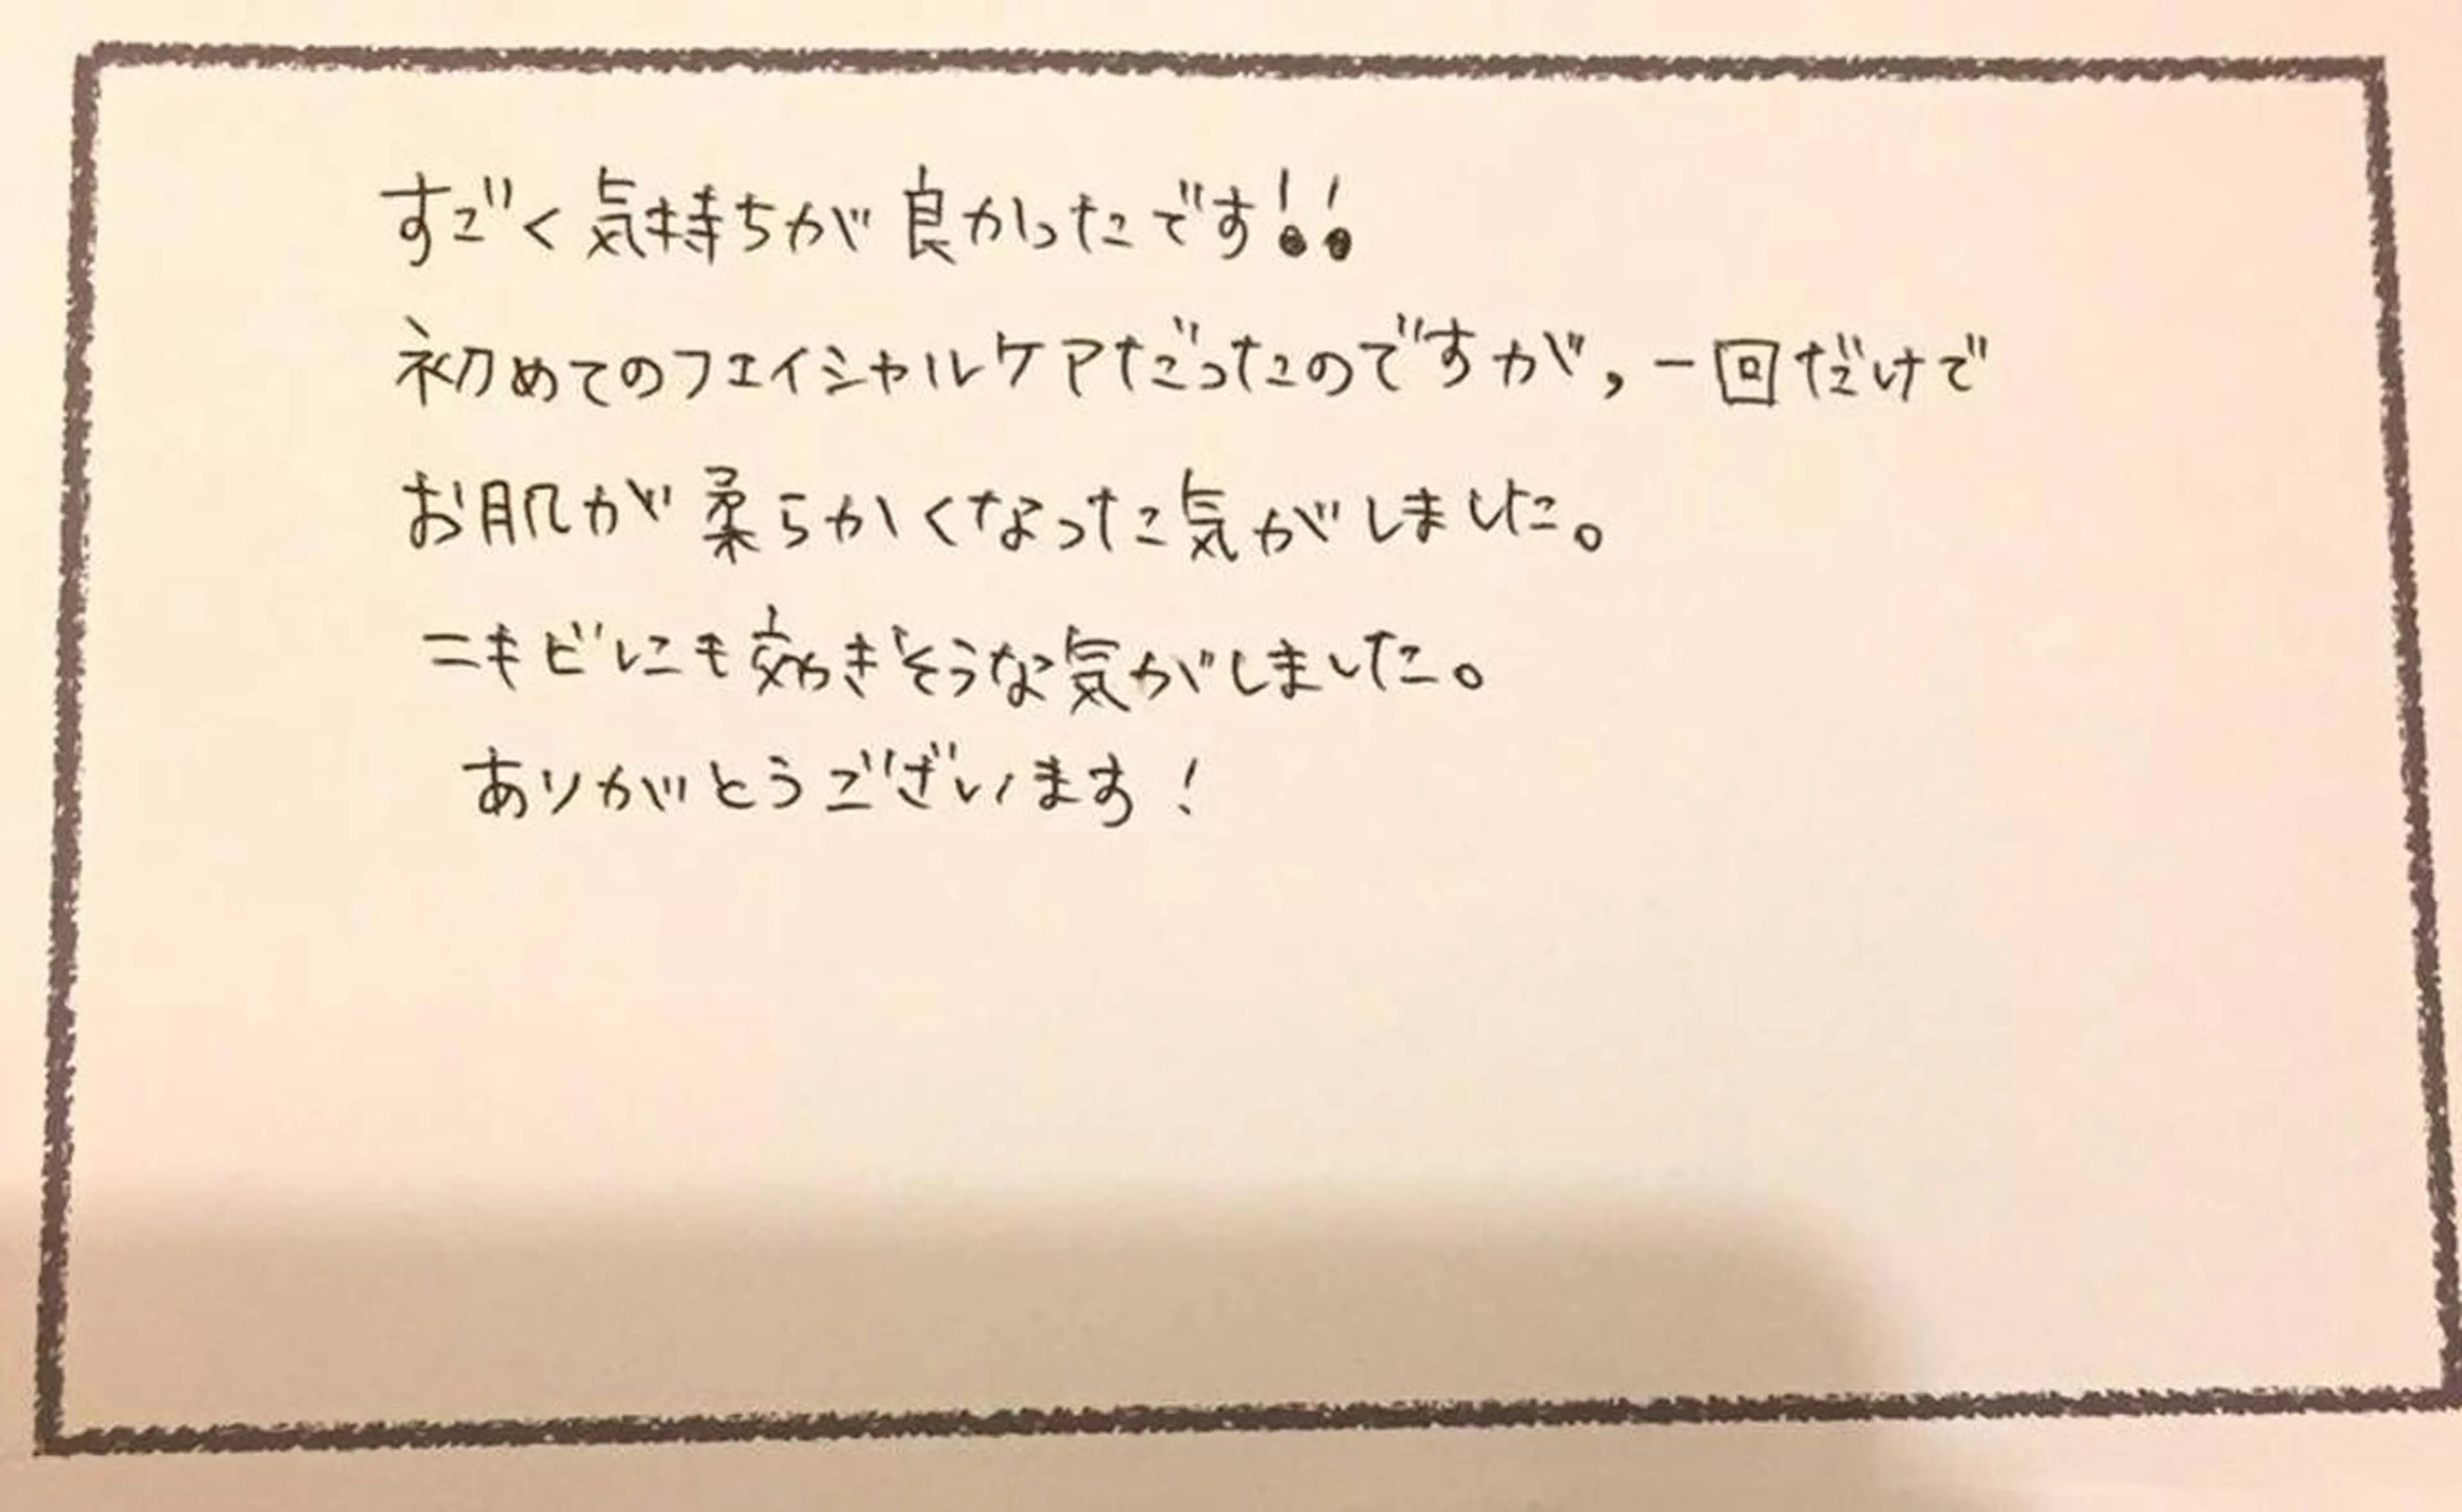 すごく気持ちが良かったです!!
初めてのフェイシャルケアだったのですが,一回だけで
お肌が柔らかくなった気がしました。
ニキビにも効きそうな気がしました。
ありがとうございます!